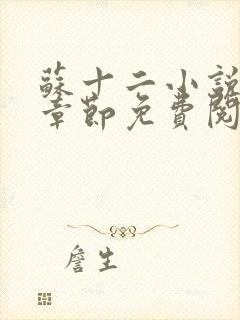 蘇十二小説
章節免費閱
詹生